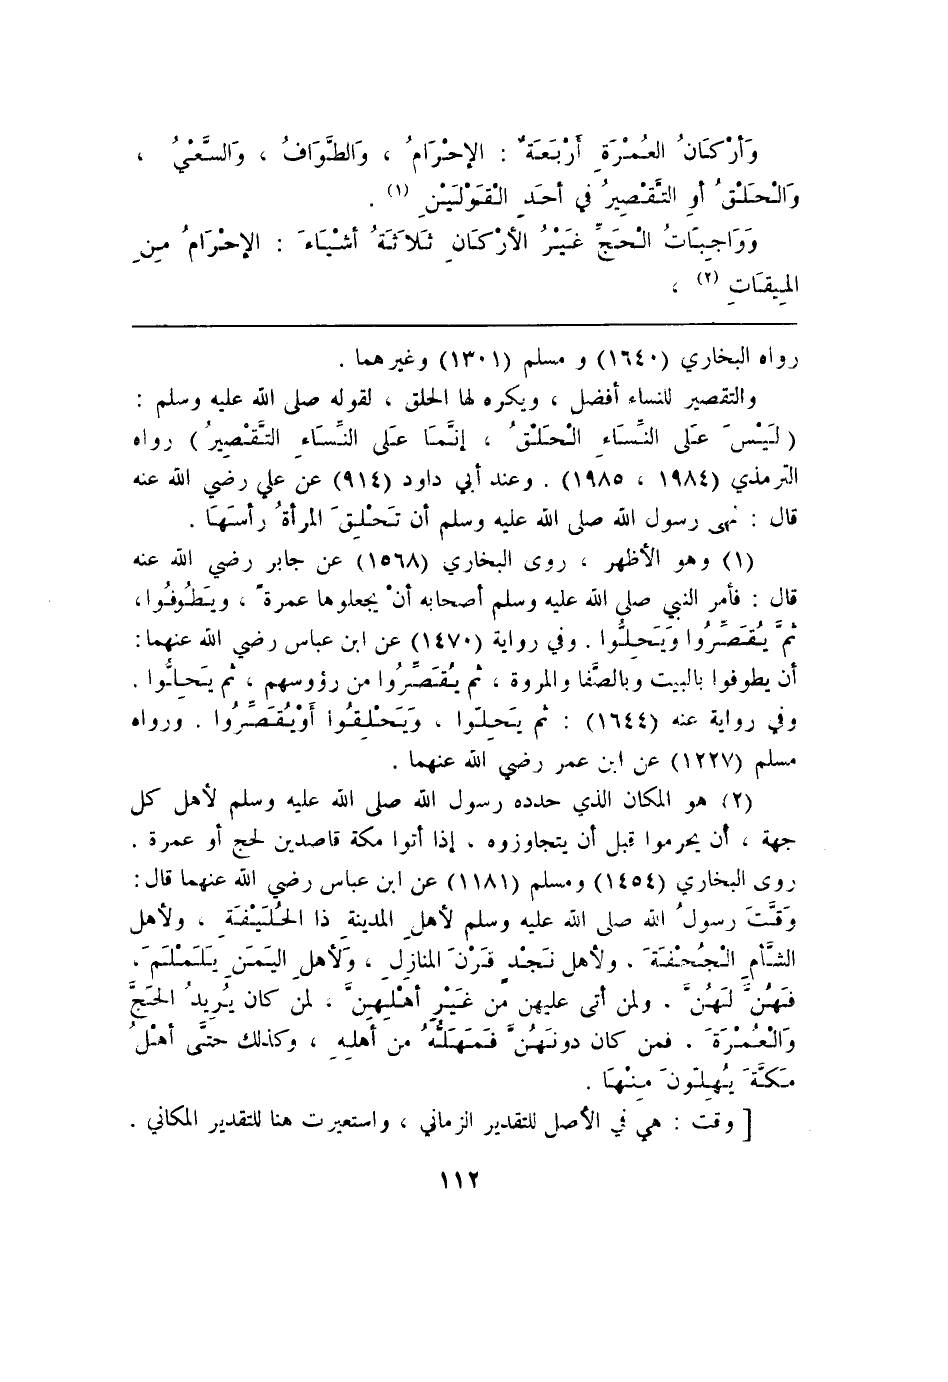 وَأَرْكَانُ العُمْرَةِ أَرْبَعَةٌ : الإحْرَامُ ، وَالطَّوَافُ ، وَالسَّعْيُ ،
وَالْحَلْقُ أوِ التَّقْصِيرُ في أحَدِ الْقَوْلَيْنِ (١) .
وَوَاجِبَاتُ الْحَجِّ غَيْرُ الأرْكَانِ ثَلاَثَةُ أشْيَاءَ : الإحْرَامُ مِنِ
المِيقَاتِ (٢) ،
رواه البخاري (١٦٤٠) و مسلم (١٣٠١) وغيرهما .
والتقصير للنساء أفضل ، ويكره لها الحلق ، لقوله صلى الله عليه وسلم :
( لَيْسَ عَلى النِّسَاءِ الْحَلْقُ ، إنَّمَا عَلى النِّسَاءِ التَّقْصِيرُ ) رواه
الترمذي (١٩٨٤ ، ١٩٨٥) . وعند أبي داود (٩١٤) عن علي رضي الله عنه
قال : نهى رسول الله صلى الله عليه وسلم أن تَحْلِقَ المرأةُ رأسَهَا .
(١) وهو الأظهر ، روى البخاري (١٥٦٨) عن جابر رضي الله عنه
قال : فأمر النبي صلى الله عليه وسلم أصحابه أنْ يجعلوها عمرةً ، ويَطُوفُوا،
ثمَّ يُقَصِّرُوا وَيَحِلُّوا . وفي رواية (١٤٧٠) عن ابن عباس رضي الله عنهما:
أن يطوفوا بالبيت وبالصَّفا والمروة ، ثم يُقَصِّرُوا من رؤوسهم ، ثم يَحِلُّوا .
وفي رواية عنه (١٦٤٤) : ثم يَحِلّوا ، وَيَحْلِقُوا أوْيُقَصِّرُوا . ورواه
مسلم (١٢٢٧) عن ابن عمر رضي الله عنهما .
(٢) هو المكان الذي حدده رسول الله صلى الله عليه وسلم لأهل كل
جهة ، أن يحرموا قبل أن يتجاوزوه . إذا أتوا مكة قاصدين لحج أو عمرة .
روى البخاري (١٤٥٤) ومسلم (١١٨١) عن ابن عباس رضي الله عنهما قال :
وَقَّتَ رسولُ الله صلى الله عليه وسلم لأهلِ المدينةِ ذا الحُلَيْفَةِ ، ولأهل
الشَّأمِ الْجُحْفَةَ . ولأهل نَجْدٍ قَرْنَ المنازِلِ ، وَلأهلِ اليَمَنِ يَلَمْلَمَ .
فَهُنَّ لَهُنَّ . ولمن أتى عليهن مِنْ غَيْرِ أهْلِهِنَّ ، لمن كان يُرِيدُ الحَجَّ
وَالْعُمْرَةَ . فمن كان دونَهُنَّ فَمَهَلُّهُ من أهلهِ ، وكذلك حتَّى أهْلُ
مَكَّةَ يُهِلّونَ مِنْهَا .
[ وقت : هي في الأصل للتقدير الزماني ، واستعيرت هنا للتقدير المكاني .
١١٢